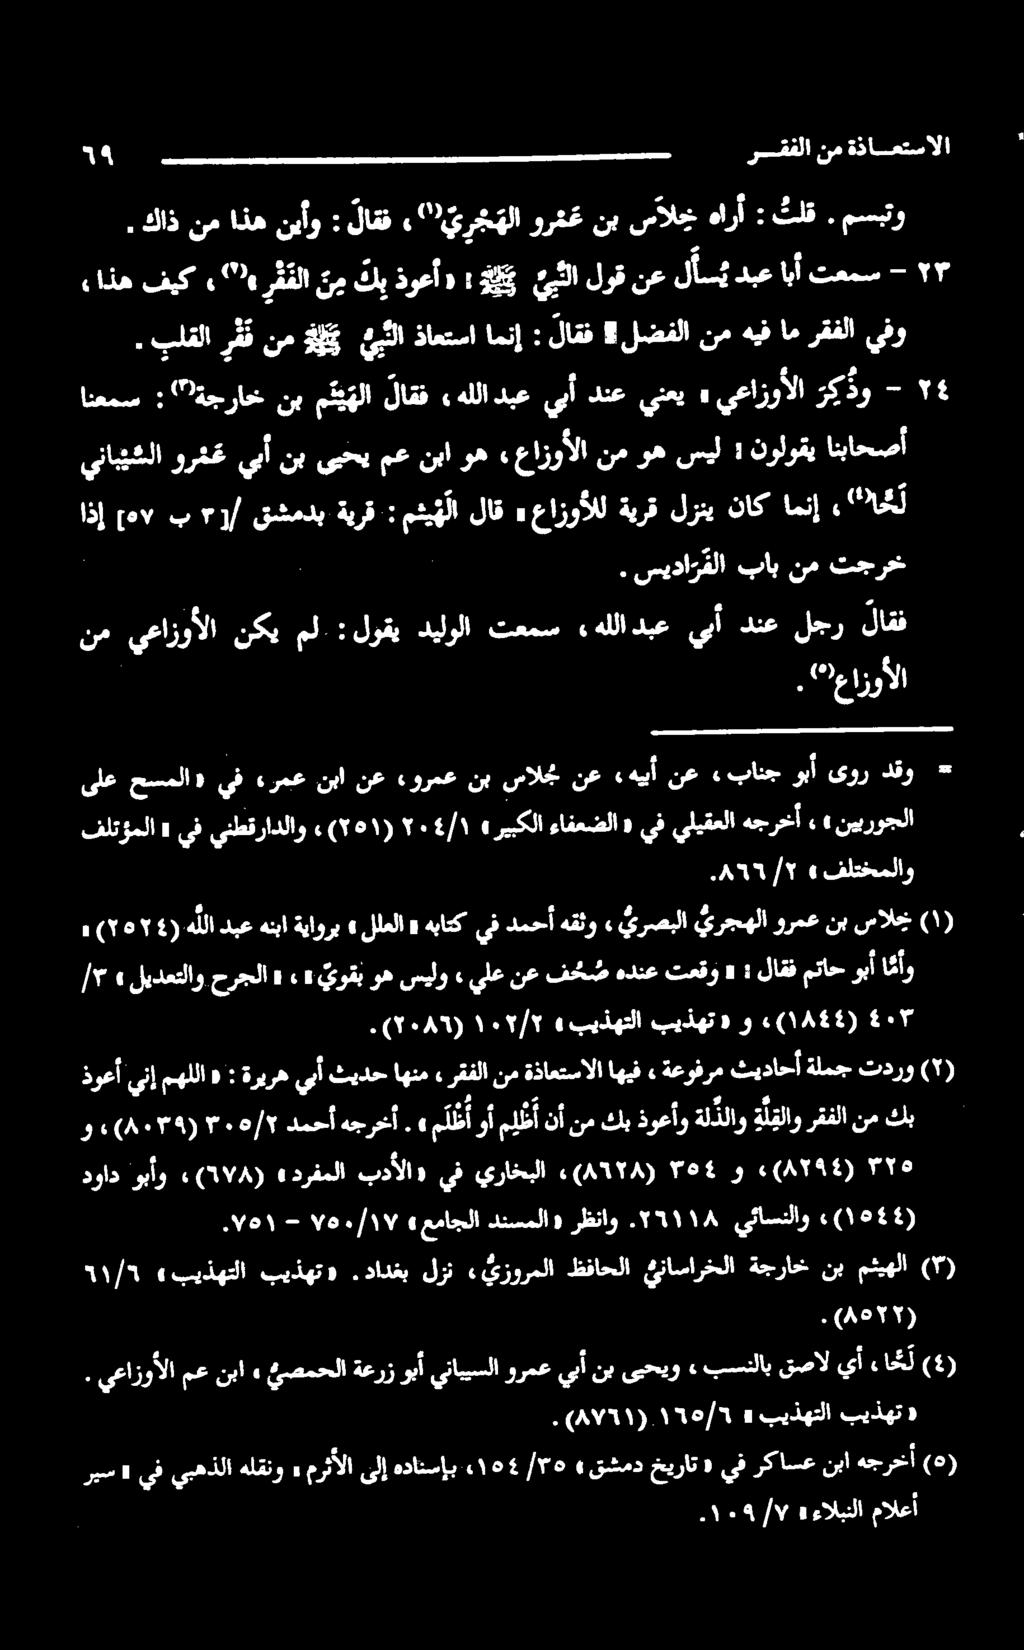 الاستعاذة من الفقر ٦٩
وتبسم. قلتُ: أراه خِلاَس بن عَمْرو الهَجَرِيّ(١)، فقالَ: وأين هذا من ذاك.
٢٣ - سمعت أبا عبد يُسأَل عن قول النَّبِيِّ ﷺ: «أعوذ بِكَ مِنَ الفَقْرِ»(٢)، كيف هذا،
وفي الفقر ما فيه من الفضل؟ فقالَ: إنما استعاذ النَّبِيُّ ﷺ من فَقْرِ القلبِ.
٢٤ - وذُكِرَ الأوزاعي، يعني عند أبي عبدالله، فقالَ الهَيْثَم بن خارجة(٣): سمعنا
أصحابنا يقولون: ليس هو من الأوزاع، هو ابن عم يحيى بن أبي عَمْرو السَّيْباني
لَحًّا(٤)، إنما كان ينزل قرية للأوزاع، قال الهَيْثم: قرية بدمشق /[٣ ب ٥٧] إذا
خرجت من باب الفَرَاديس.
فقالَ رجل عند أبي عبدالله، سمعت الوليد يقول: لم يكن الأوزاعي من
الأوزاع(٥).
= وقد روى أبو جناب، عن أبيه، عن جُلاس بن عمرو، عن ابن عمر، في «المسح على
الجوربين»، أخرجه العقيلي في «الضعفاء الكبير» ٢٠٤/١ (٢٥١)، والدارقطني في «المؤتلف
والمختلف» ٢/ ٨٦٦.
(١) خِلاس بن عمرو الهجريُّ البصريُّ، وثقه أحمد في كتابه «العلل» برواية ابنه عبد الله (٢٥٢٤)،
وأمَّا أبو حاتم فقال: «وقعت عنده صُحُف عن علي، وليس هو بقويّ»، «الجرح والتعديل» ٣/
٤٠٣ (١٨٤٤)، و «تهذيب التهذيب» ١٠٢/٢ (٢٠٨٦).
(٢) وردت جملة أحاديث مرفوعة، فيها الاستعاذة من الفقر، منها حديث أبي هريرة: «اللهم إني أعوذ
بك من الفقر والقِلَّةِ والذِّلة وأعوذ بك من أن أَظْلِم أو أُظْلَم». أخرجه أحمد ٣٠٥/٢ (٨٠٣٩)، و
٣٢٥ (٨٢٩٤)، و ٣٥٤ (٨٦٢٨)، البخاري في «الأدب المفرد» (٦٧٨)، وأبو داود
(١٥٤٤)، والنسائي ٢٦١١٨. وانظر «المسند الجامع» ٧٥٠/١٧ - ٧٥١.
(٣) الهيثم بن خارجة الخراسانيُّ الحافظ المروزيُّ، نزل بغداد. «تهذيب التهذيب» ٦١/٦
(٨٥٢٢).
(٤) لَحًّا، أي لاصق بالنسب، ويحيى بن أبي عمرو السيباني أبو زرعة الحمصيُّ، ابن عم الأوزاعي.
«تهذيب التهذيب» ١٦٥/٦ (٨٧٦١).
(٥) أخرجه ابن عساكر في «تاريخ دمشق» ٣٥/ ١٥٤، بإسناده إلى الأثرم، ونقله الذهبي في «سير
أعلام النبلاء» ٧/ ١٠٩.